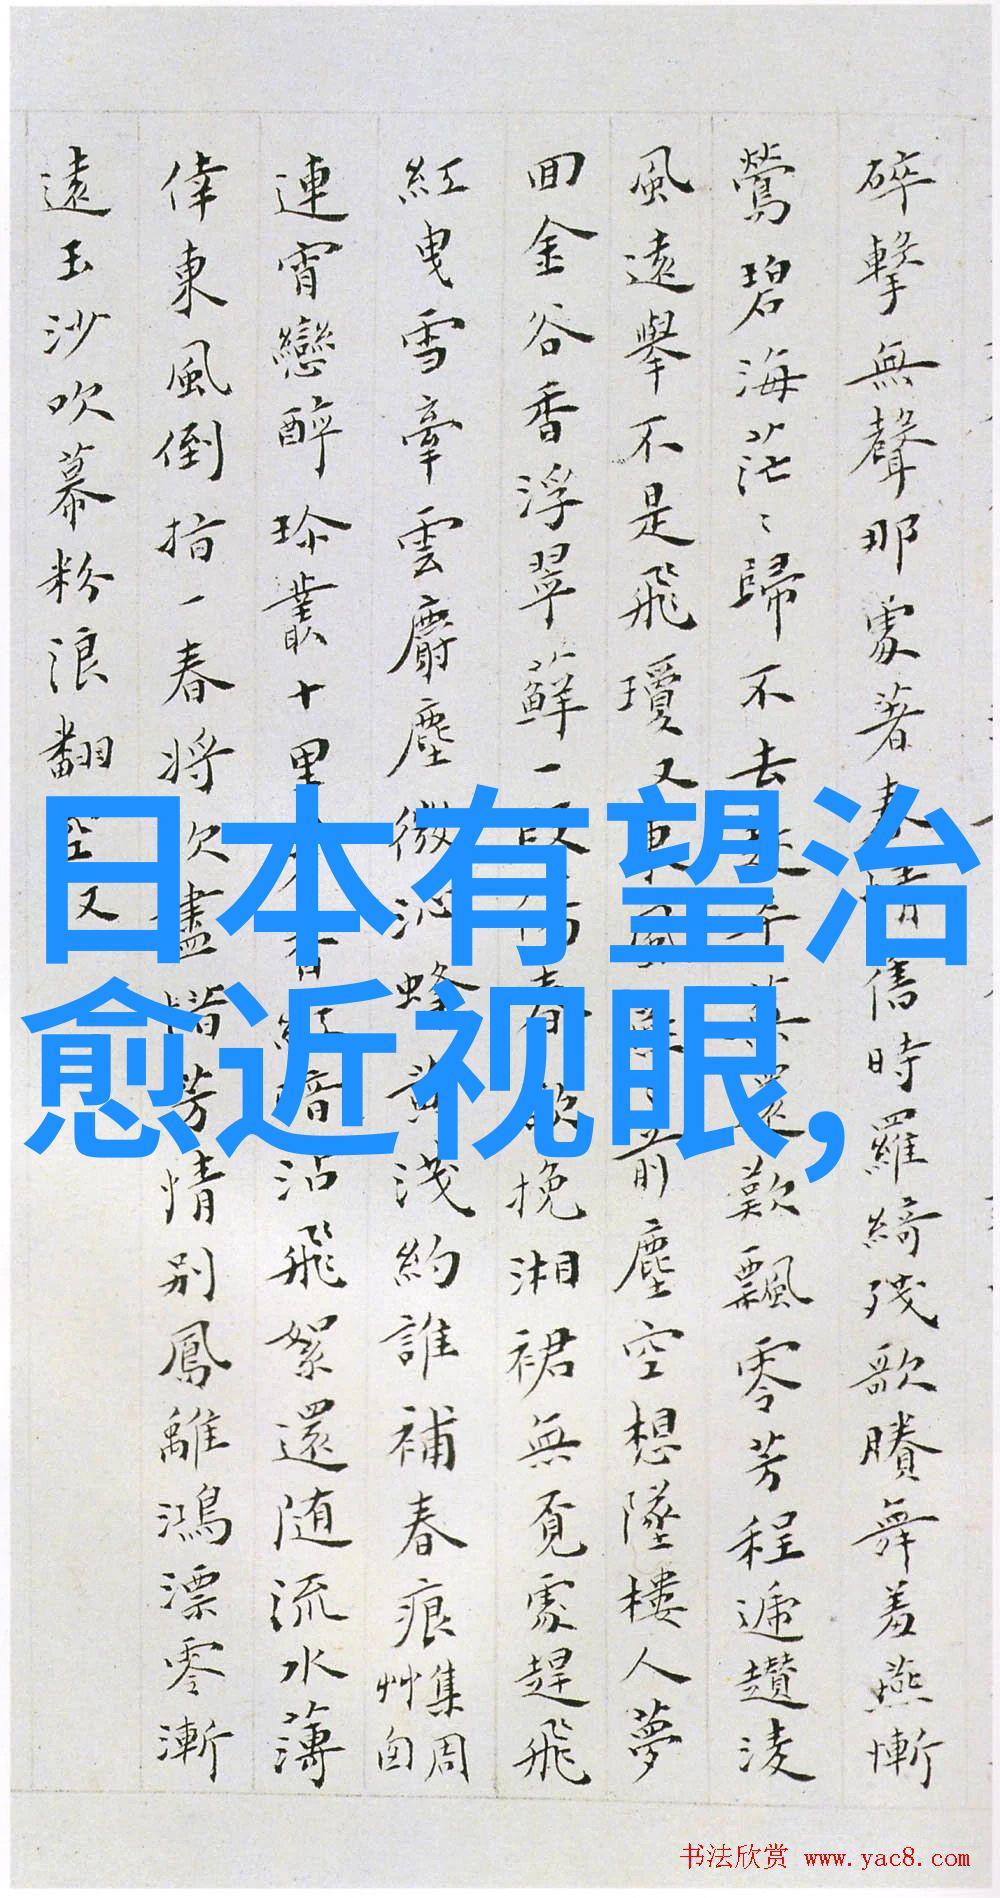 碎擊無聲那處著春情舊時羅綺殘歌賸舞羞燕慚
鶯碧海茫〻歸不去還歎飄零芳程遞趲淩
風遠舉不是飛瓊又東風前塵空想墜樓人夢
回金谷香浮翠蘚一段傷春欲挽湘裙無覓處趕飛
紅曳雪牽雲麝塵微沁蜂黃淺約誰補春痕 集周艸囪
連宵戀醉珍叢十里香紅暗沾飛絮還随流水薄
倖東風倒指一春將次盡惜芳情別鳳離鴻漂零漸
遠玉沙吹幕粉浪翻空又
日本有望治
愈近视眼,
书法欣赏 www.yac8.com